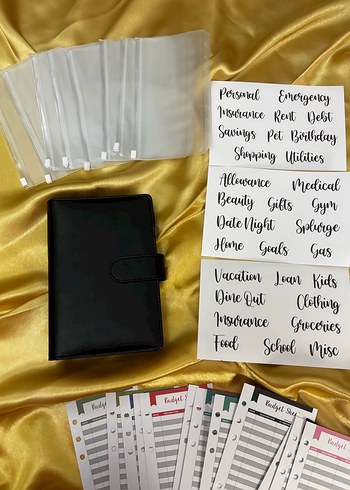 Personal Emergency
Insurance Rent Debt
Savings Pet Birthday
Shopping Utilities
Allowance Medical
Beauty Gifts Gym
Date Night Splurge
Home Goals Gas
Vacation Loan Kids
Dine Out Clothing
Insurance Groceries
Food School Misc
Budget
Budget
Budget